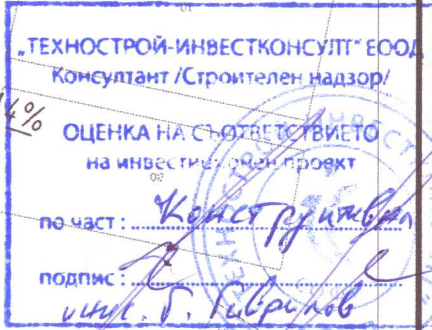 „ТЕХНОСТРОЙ-ИНВЕСТКОНСУЛТ" ЕООД
Консултант /Строителен надзор/
14%
ОЦЕНКА НА СЪОТВЕТСТВИЕТО
на инвестиционен проект
по част: Конструктивна
подпис:
инж. Г. Гаврилов